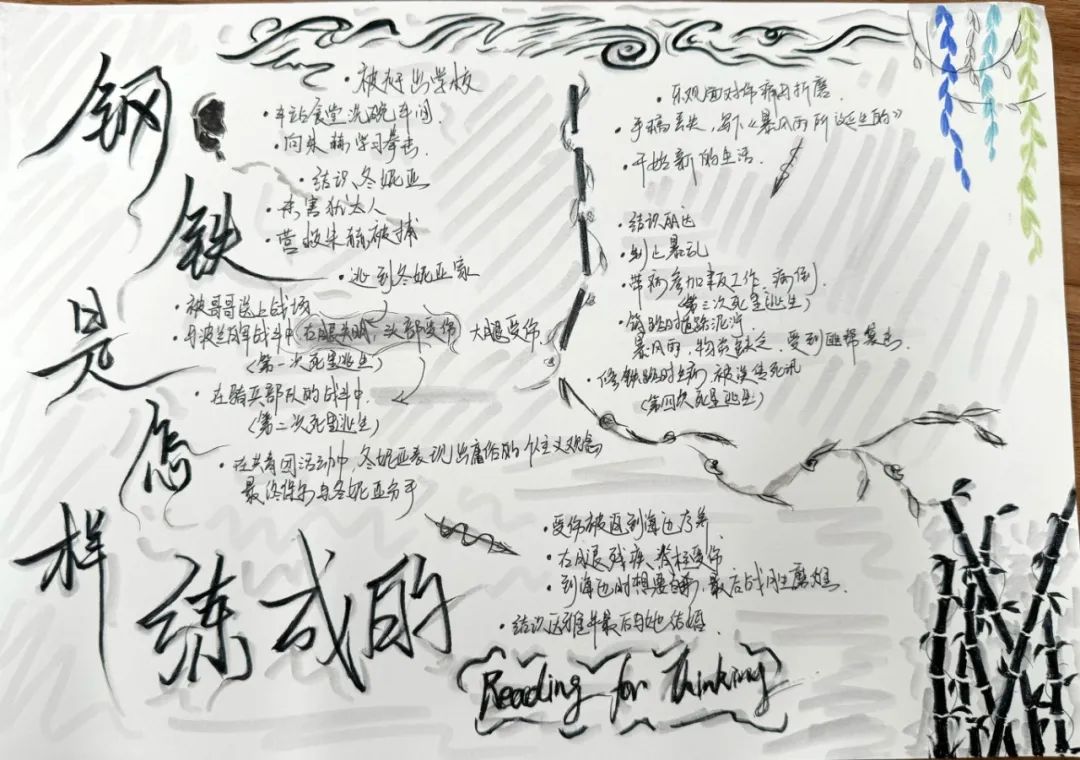 钢铁是怎样练成的
·被赶出学校
·车站食堂洗碗车间.
·向朱赫学习拳击.
·结识冬妮亚
·杀害犹太人
·营救朱赫被捕
·逃到冬妮亚家
·被哥哥送上战场
·与波兰战斗中右眼失明,头部受伤 大腿受伤.
(第一次死里逃生)
·在骑兵部队的战斗中.
(第二次死里逃生)
·在共青团活动中,冬妮亚表现出庸俗的个主义观念
最终保尔与冬妮亚分手
·乐观面对伤病与折磨.
·手稿丢失,写下《暴风雨所诞生的》
·开始新的生活.
·结识丽达
·制止暴乱
·带病参加工作,病倒.
(第三次死里逃生)
·筑路时道路泥泞
暴风雨,物资缺乏,受到匪帮袭击.
·修铁路时生病,被误传死讯
(第四次死里逃生)
·受伤被送到海边疗养
·右眼残疾,脊柱受伤
·到海边时想要自杀,最后战胜磨难.
·结识达雅并最后与她结婚.
Reading for Thinking